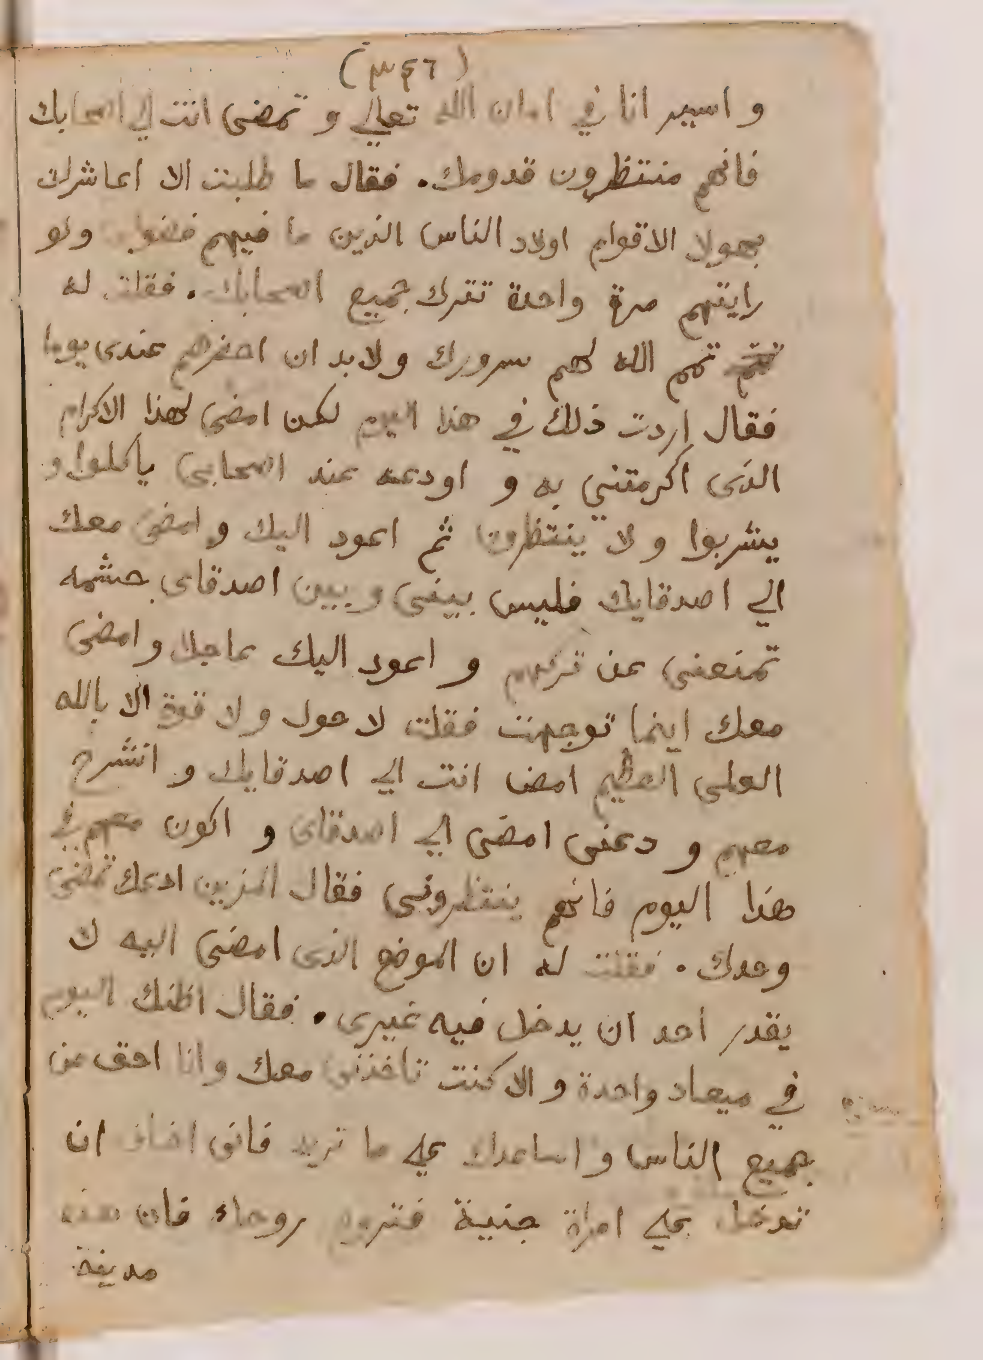 (٣٤٦)
و اسير انا في امان الله تعالي و تمضى انت الي اصحابك
فانهم منتظرون قدومك. فقال ما طلبت الا اعاشرك
بهولا الاقوام اولاد الناس الذين ما فيهم فضولي ولو
رايتهم مرة واحدة تترك جميع اصحابك. فقلت له
تمم الله لهم سرورك ولابد ان احضرهم عندى يوما
فقال اردت ذلك في هذا اليوم لكن امضى لهذا الاكرام
الذى اكرمتني به و اودعه عند اصحابى ياكلوا و
يشربوا و لا ينتظرونا ثم اعود اليك و امضى معك
الي اصدقايك فليس بينى و بين اصدقاى حشمه
تمنعنى عن تركهم و اعود اليك عاجلا و امضى
معك اينما توجهت فقلت لا حول و لا قوة الا بالله
العلى العظيم امض انت الي اصدقايك و انشرح
معهم و دعنى امضى الي اصدقاى و اكون معهم في
هذا اليوم فانهم ينتظرونى فقال المزين ادعك تمضى
وحدك. فقلت له ان الموضع الذى امضى اليه لا
يقدر احد ان يدخل فيه غيرى. فقال اظنك اليوم
في ميعاد واحدة و الا كنت تاخذنى معك وانا احق من
جميع الناس و اساعدك علي ما تريد فانى اخاف ان
تدخل علي امراة جنبية فتروح روحك فان هذه
مدينة